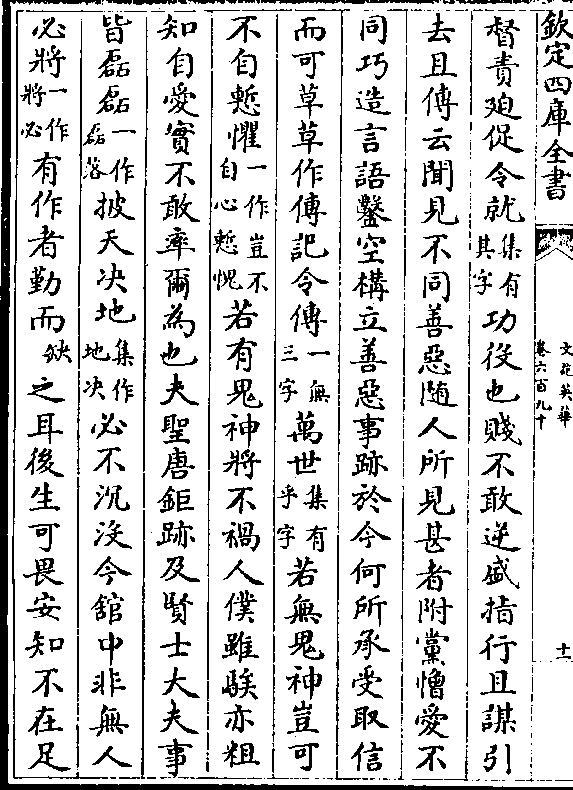 欽定四庫全書
文苑英華
卷六百九十
十一
督責廹促令就集有其字功役也賤不敢逆盛指行且謀引
去且傳云聞見不同善惡随人所見甚者附黨憎愛不
同巧造言語鑿空構立善惡事跡於今何所承受取信
而可草草作傳記令傳一無三字萬世集有乎字若無鬼神豈可
不自慙懼一作豈不自心慙愧若有鬼神將不禍人僕雖騃亦粗
知自愛實不敢率爾為也夫聖唐鉅跡及賢士大夫事
皆磊磊一作磊落披天决地集作地决必不沉沒今舘中非無人
必將一作將必有作者勤而缺之耳後生可畏安知不在足